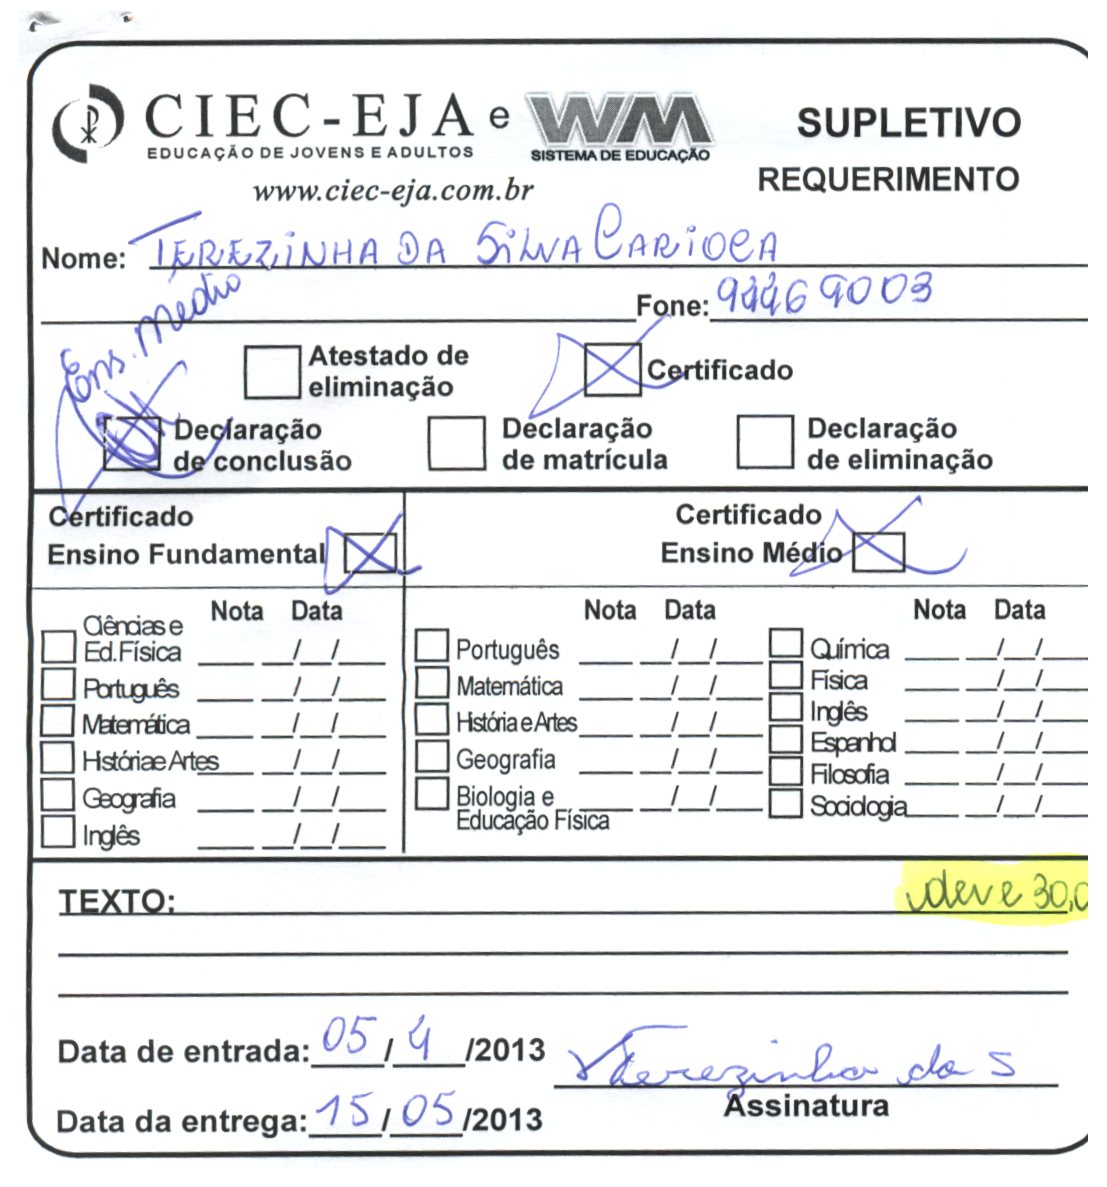 CIEC-EJA e WM SUPLETIVO
EDUCAÇÃO DE JOVENS E ADULTOS SISTEMA DE EDUCAÇÃO
www.ciec-eja.com.br REQUERIMENTO
Nome: TEREZINHA DA SILVA CARIOCA
Fone: 94469003
Ens. Médio
Atestado de eliminação Certificado
Declaração de conclusão Declaração de matrícula Declaração de eliminação
Certificado Ensino Fundamental Certificado Ensino Médio
Nota Data Nota Data Nota Data
Ciências e Ed. Física ____ __/__/____
Português ____ __/__/____
Matemática ____ __/__/____
História e Artes ____ __/__/____
Geografia ____ __/__/____
Inglês ____ __/__/____
Português ____ __/__/____
Matemática ____ __/__/____
História e Artes ____ __/__/____
Geografia ____ __/__/____
Biologia e Educação Física ____ __/__/____
Química ____ __/__/____
Física ____ __/__/____
Inglês ____ __/__/____
Espanhol ____ __/__/____
Filosofia ____ __/__/____
Sociologia ____ __/__/____
TEXTO: deve 30,0
Data de entrada: 05/4/2013 Terezinha da S
Data da entrega: 15/05/2013 Assinatura